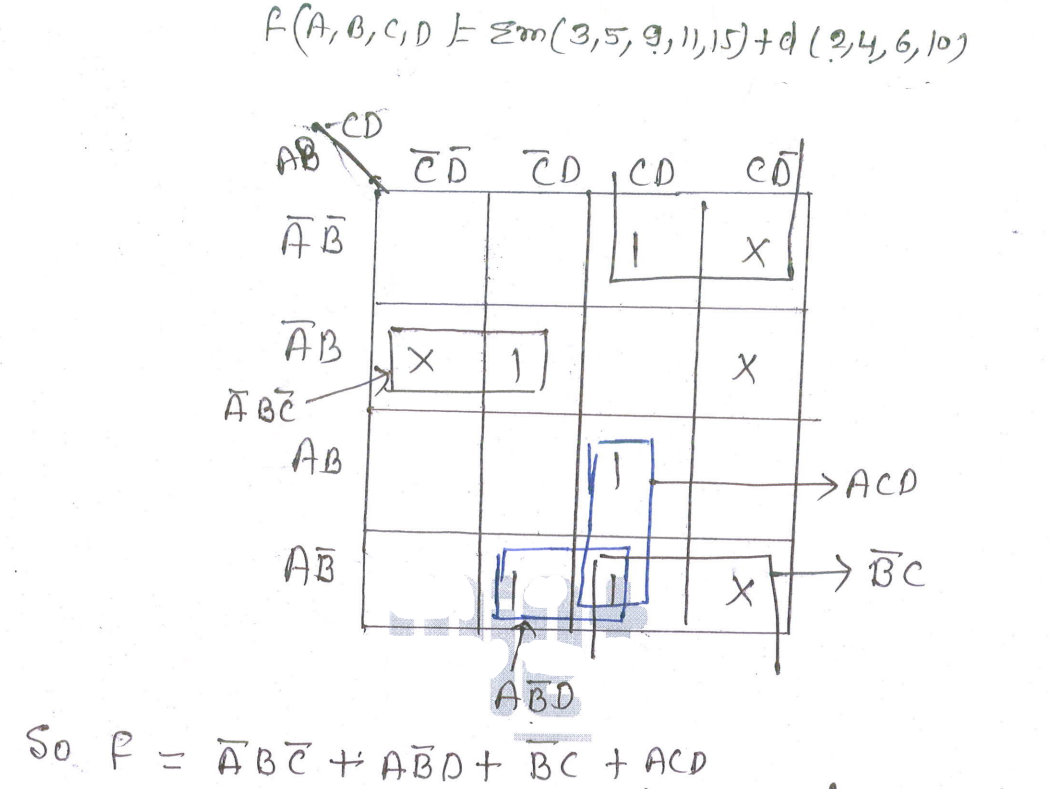 F(A, B, C, D) = Σm(3,5,9,11,15)+d(2,4,6,10)
CD
AB C̅D̅ C̅D CD CD̅
A̅B̅ 1 X
A̅B X 1 X
A̅BC̅
AB 1 → ACD
AB̅ 1 1 X → B̅C
AB̅D
So F = A̅BC̅ + AB̅D + B̅C + ACD